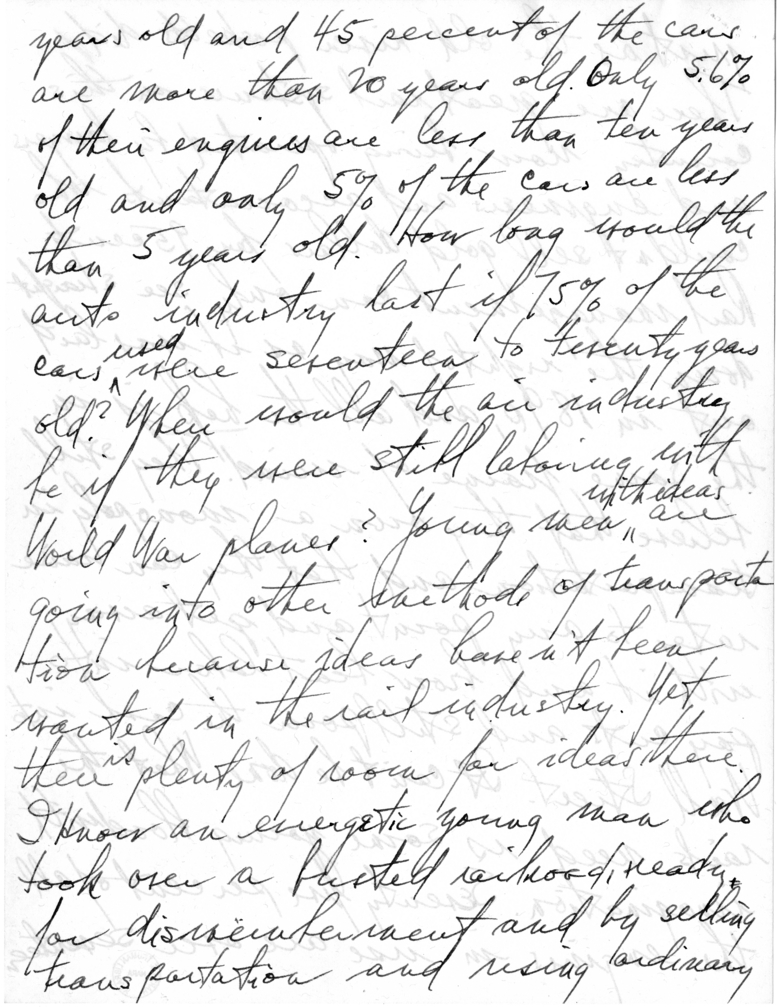 years old and 45 percent of the cars
are more than 20 years old. Only 5.6%
of their engines are less than ten years
old and only 5% of the cars are less
than 5 years old. How long would the
auto industry last if 75% of the
cars used were seventeen to twenty years
old? Where would the air industry
be if they were still laboring with
World War planes? Young men with ideas are
going into other methods of transporta
tion because ideas haven't been
wanted in the rail industry. Yet
there is plenty of room for ideas there.
I know an energetic young man who
took over a busted railroad, ready
for dismemberment and by selling
transportation and using ordinary